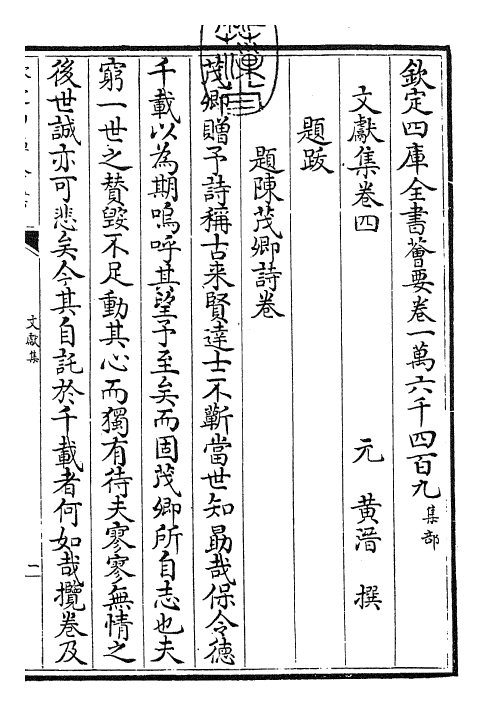 欽定四庫全書薈要卷一萬六千四百九集部
文獻集卷四
元 黃溍 撰
題跋
題陳茂卿詩卷
茂卿贈予詩稱古来賢達士不蘄當世知勗哉保令德
千載以為期嗚呼其望予至矣而固茂卿所自志也夫
窮一世之贊毀不足動其心而獨有待夫寥寥無情之
後世誠亦可悲矣今其自託於千載者何如哉攬卷及
文獻集